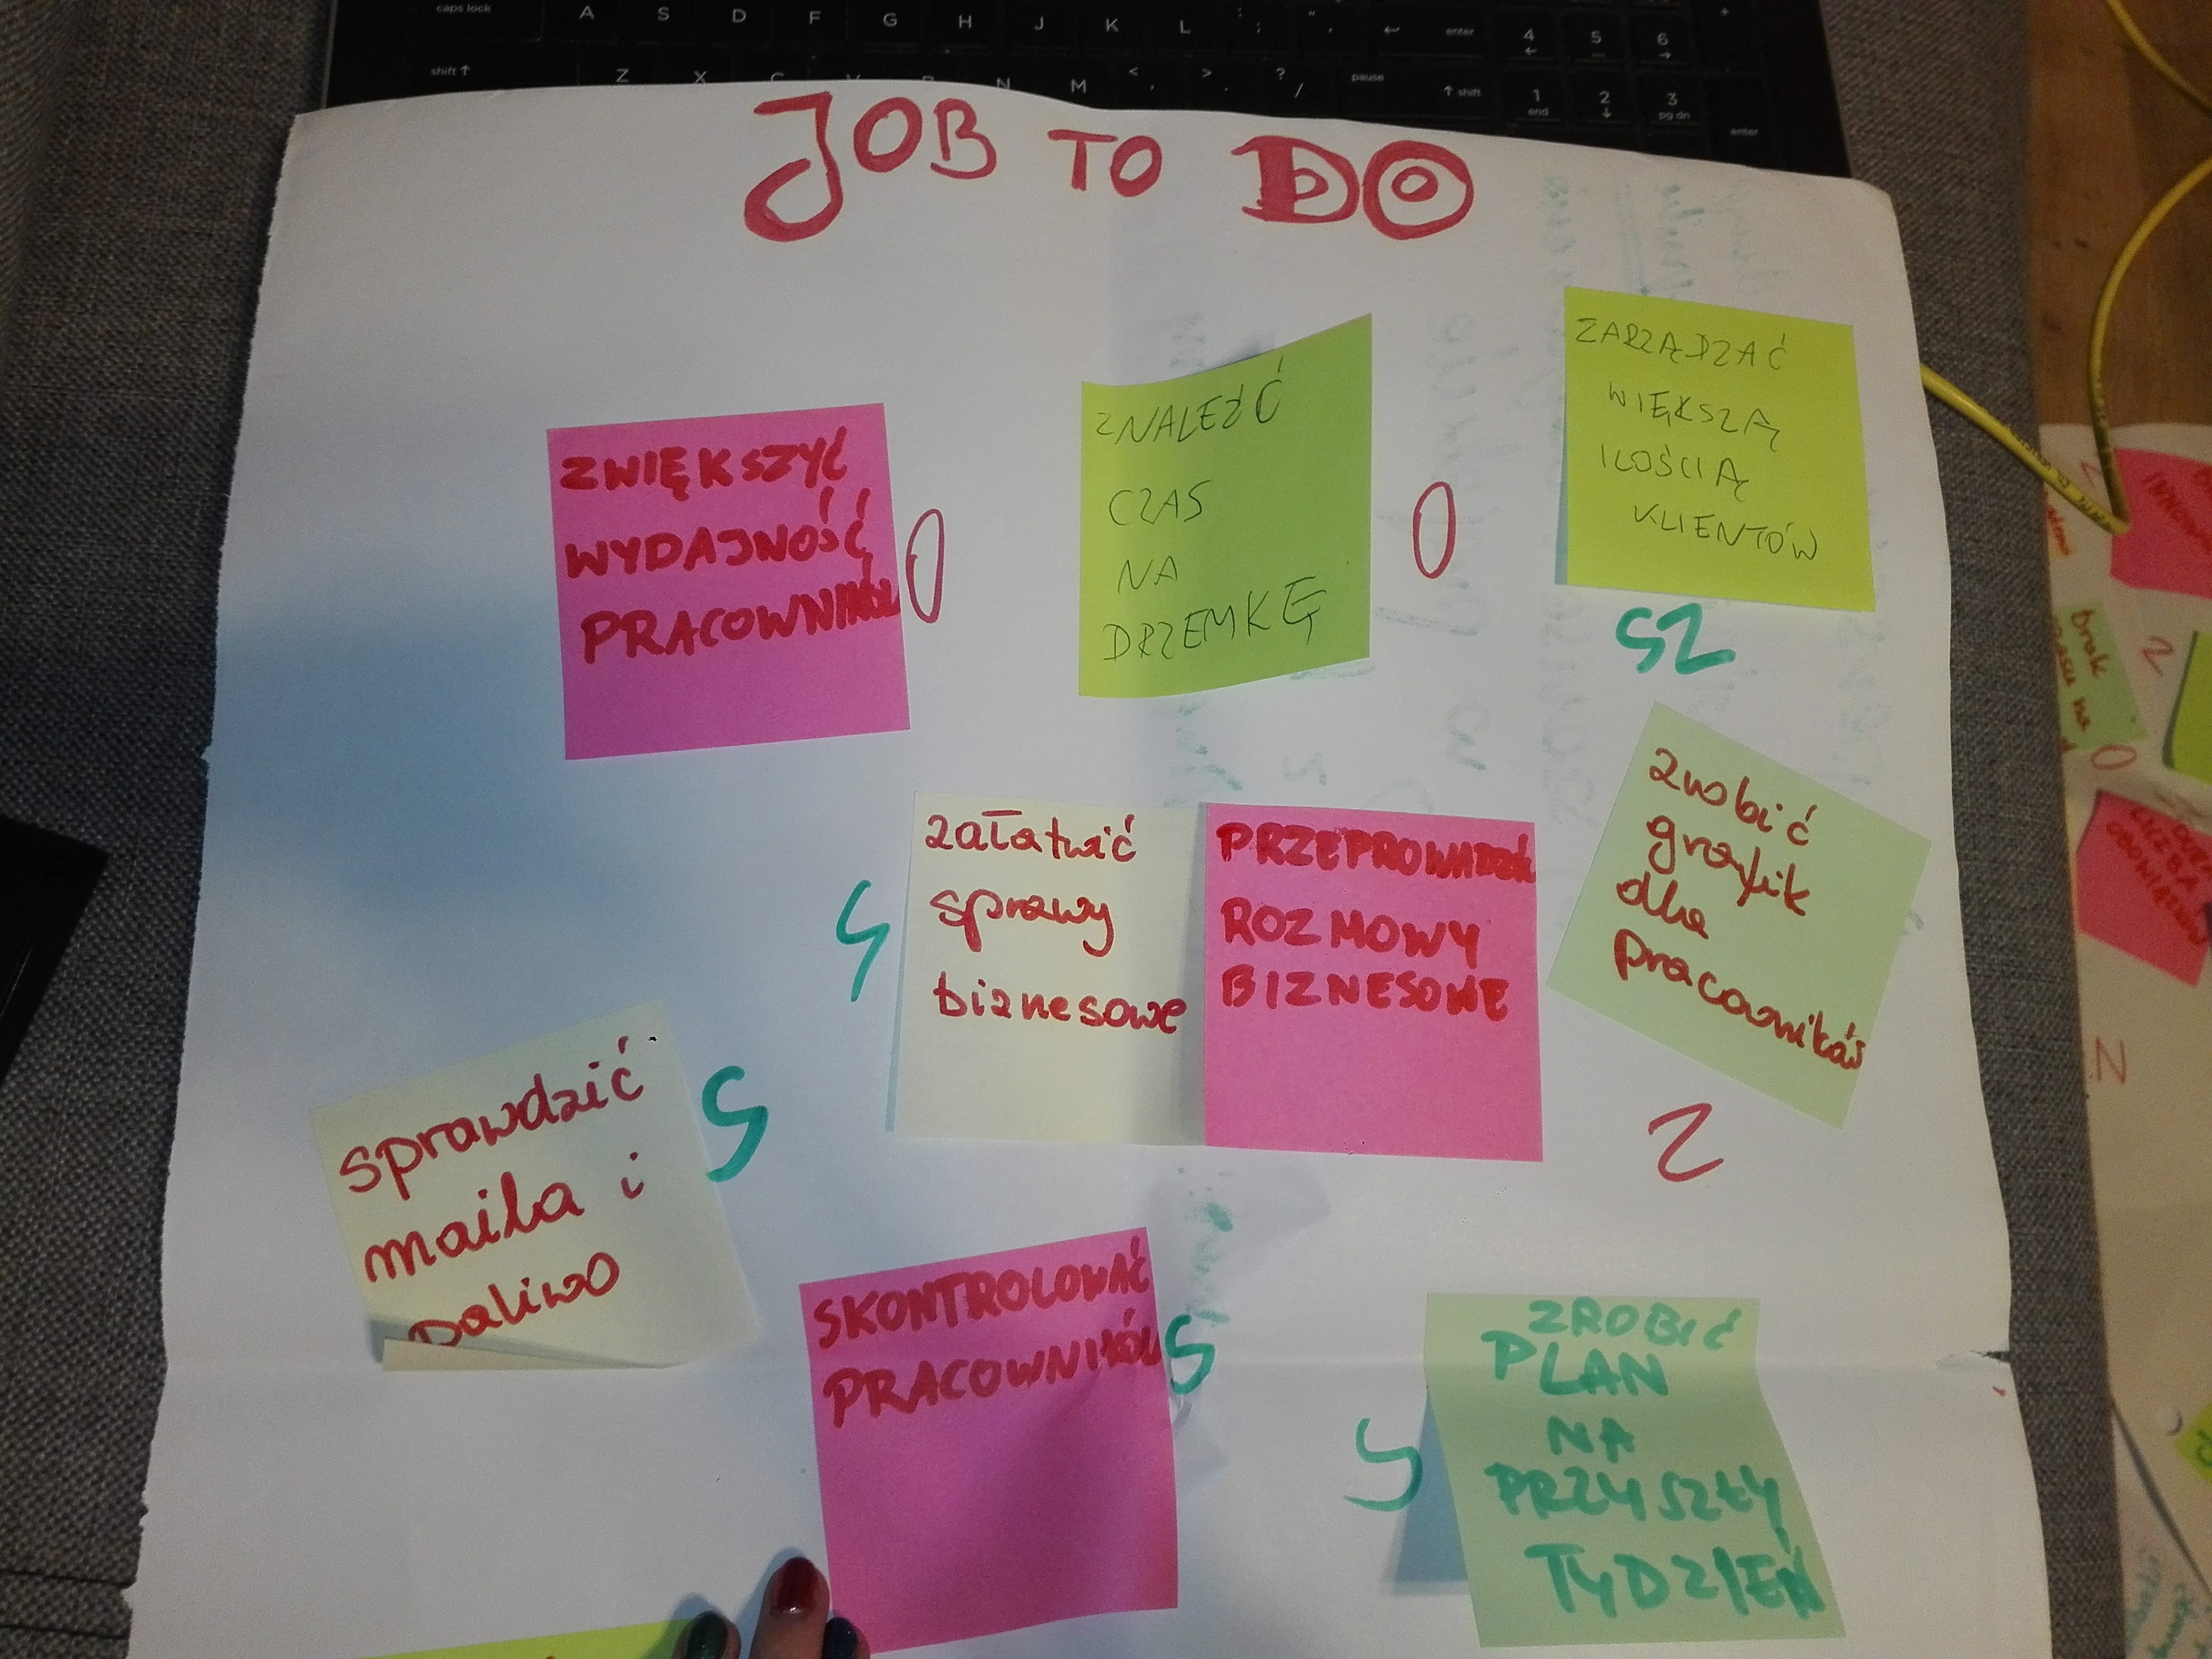 caps lock
A S D F G H J K L : ; " ' enter 4 5 6
shift Z X C V B N M < , > . ? / pause shift 1 end 2 3 pg dn enter
JOB TO DO
ZWIĘKSZYĆ
WYDAJNOŚĆ
PRACOWNIKÓW
O
ZNALEŹĆ
CZAS
NA
DRZEMKĘ
O
ZARZĄDZAĆ
WIĘKSZĄ
ILOŚCIĄ
KLIENTÓW
SZ
S
załatwić
sprawy
biznesowe
PRZEPROWADZIĆ
ROZMOWY
BIZNESOWE
zrobić
grafik
dla
pracowników
Z
sprawdzić
maila i
paliwo
S
SKONTROLOWAĆ
PRACOWNIKÓW
S
S
ZROBIĆ
PLAN
NA
PRZYSZŁY
TYDZIEŃ
brak
na
Z
O
LICZBA
N